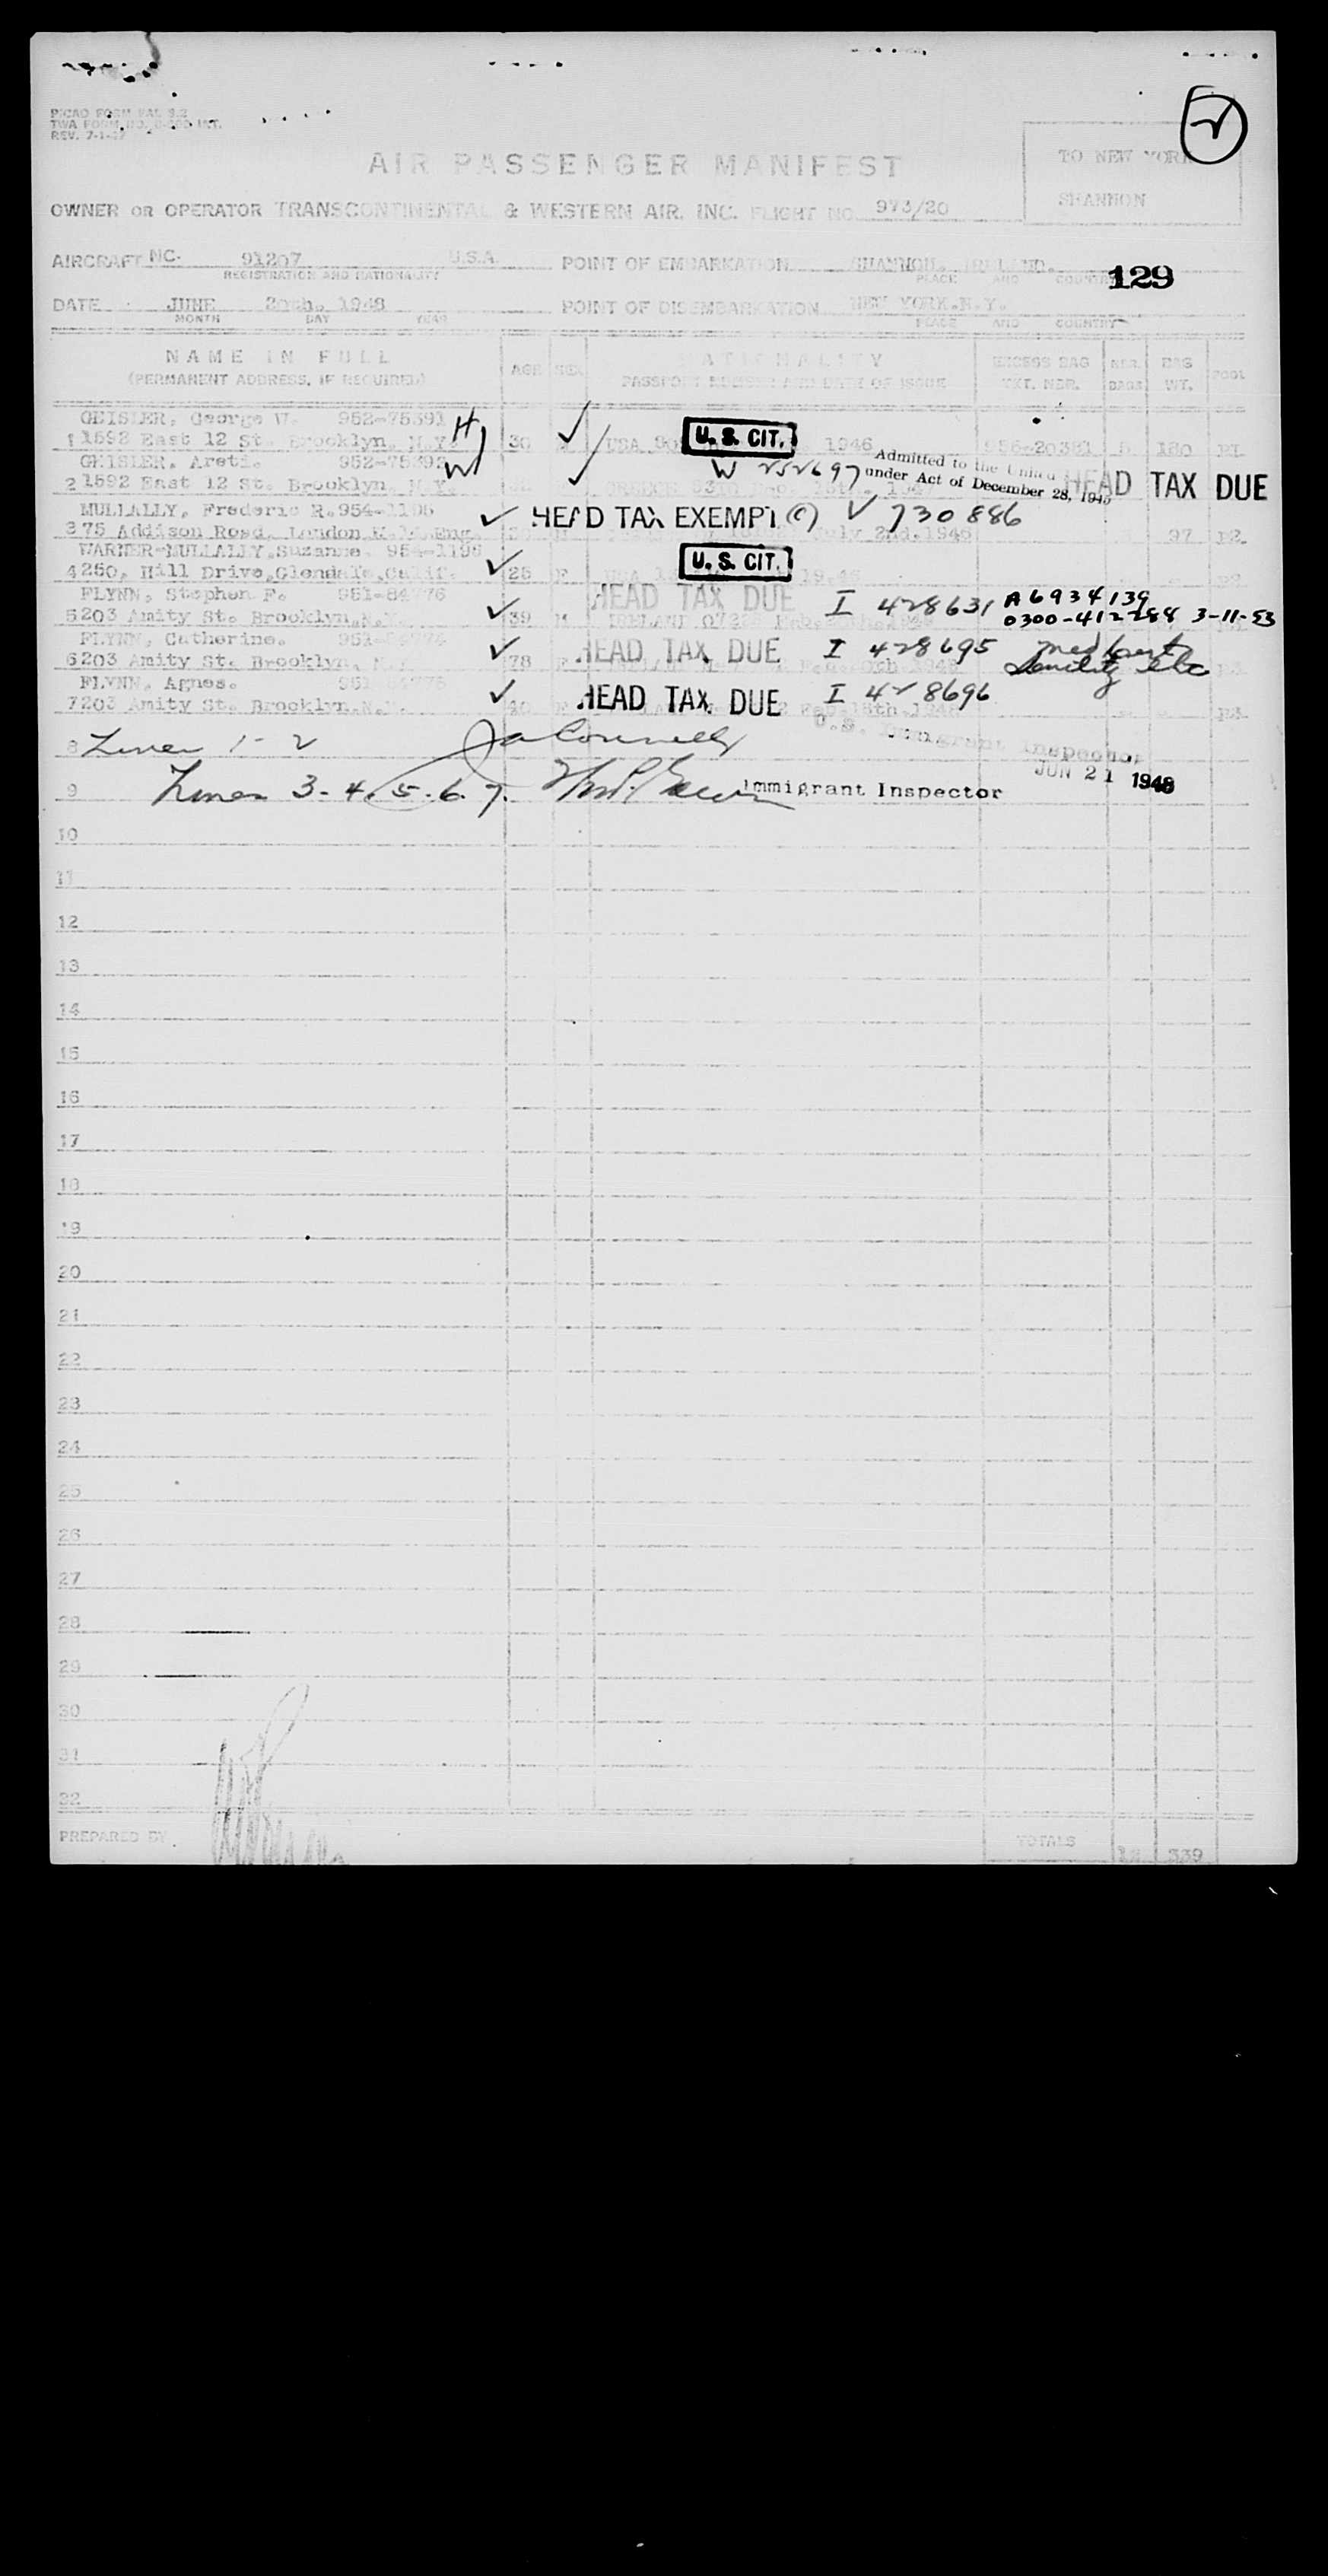 PICAO FORM FAL 3.2
TWA FORM NO. INT.
REV. 7-1-47
2
AIR PASSENGER MANIFEST
TO NEW YORK
SHANNON
OWNER OR OPERATOR TRANSCONTINENTAL & WESTERN AIR. INC. FLIGHT NO. 973/20
AIRCRAFT NC. 91207 U.S.A. POINT OF EMBARKATION SHANNON, IRELAND.
REGISTRATION AND NATIONALITY PLACE AND COUNTRY
129
DATE JUNE 20th. 1948 POINT OF DISEMBARKATION NEW YORK.N.Y.
MONTH DAY YEAR PLACE AND COUNTRY
NAME IN FULL AGE SEX NATIONALITY EXCESS BAG NBR. BAG POOL
(PERMANENT ADDRESS, IF REQUIRED) PASSPORT NUMBER AND DATE OF ISSUE TKT. NBR. BAGS WT.
GEISLER, George W. 952-75391 H
1 1592 East 12 St. Brooklyn, N.Y. 30 M USA U. S. CIT. 1946 956-20381 180 P1
GEISLER, Areti. 952-75392 W W 252697 Admitted to the United
2 1592 East 12 St. Brooklyn, N.Y. GREECE under Act of December 28, 1945 HEAD TAX DUE
MULLALLY, Frederic R. 954-1195 HEAD TAX EXEMPT (C) V 730886
3 75 Addison Road, London Eng. M July 2nd.1946 97 P2
WARNER-MULLALLY,Suzanne. 954-1196 U. S. CIT.
4 260, Hill Drive,Glendale,Calif. 25 F USA 1946 P2
FLYNN, Stephen F. 951-84776 HEAD TAX DUE I 428631 A6934139
5 203 Amity St. Brooklyn,N.Y. 39 M IRELAND 0300-412288 3-11-53
FLYNN, Catherine. 951- HEAD TAX DUE I 428695 Med cert
6 203 Amity St. Brooklyn, N. 78 F 1948 Senility etc P3
FLYNN, Agnes. 951 HEAD TAX DUE I 428696
7 203 Amity St. Brooklyn.N.Y. 40 F Feb.18th.1948 P3
8 Lines 1-2 U.S. Immigrant Inspector
JUN 21 1948
9 Lines 3-4.5.6.7. Immigrant Inspector
10
11
12
13
14
15
16
17
18
19
20
21
22
23
24
25
26
27
28
29
30
31
32
PREPARED BY TOTALS 12 339